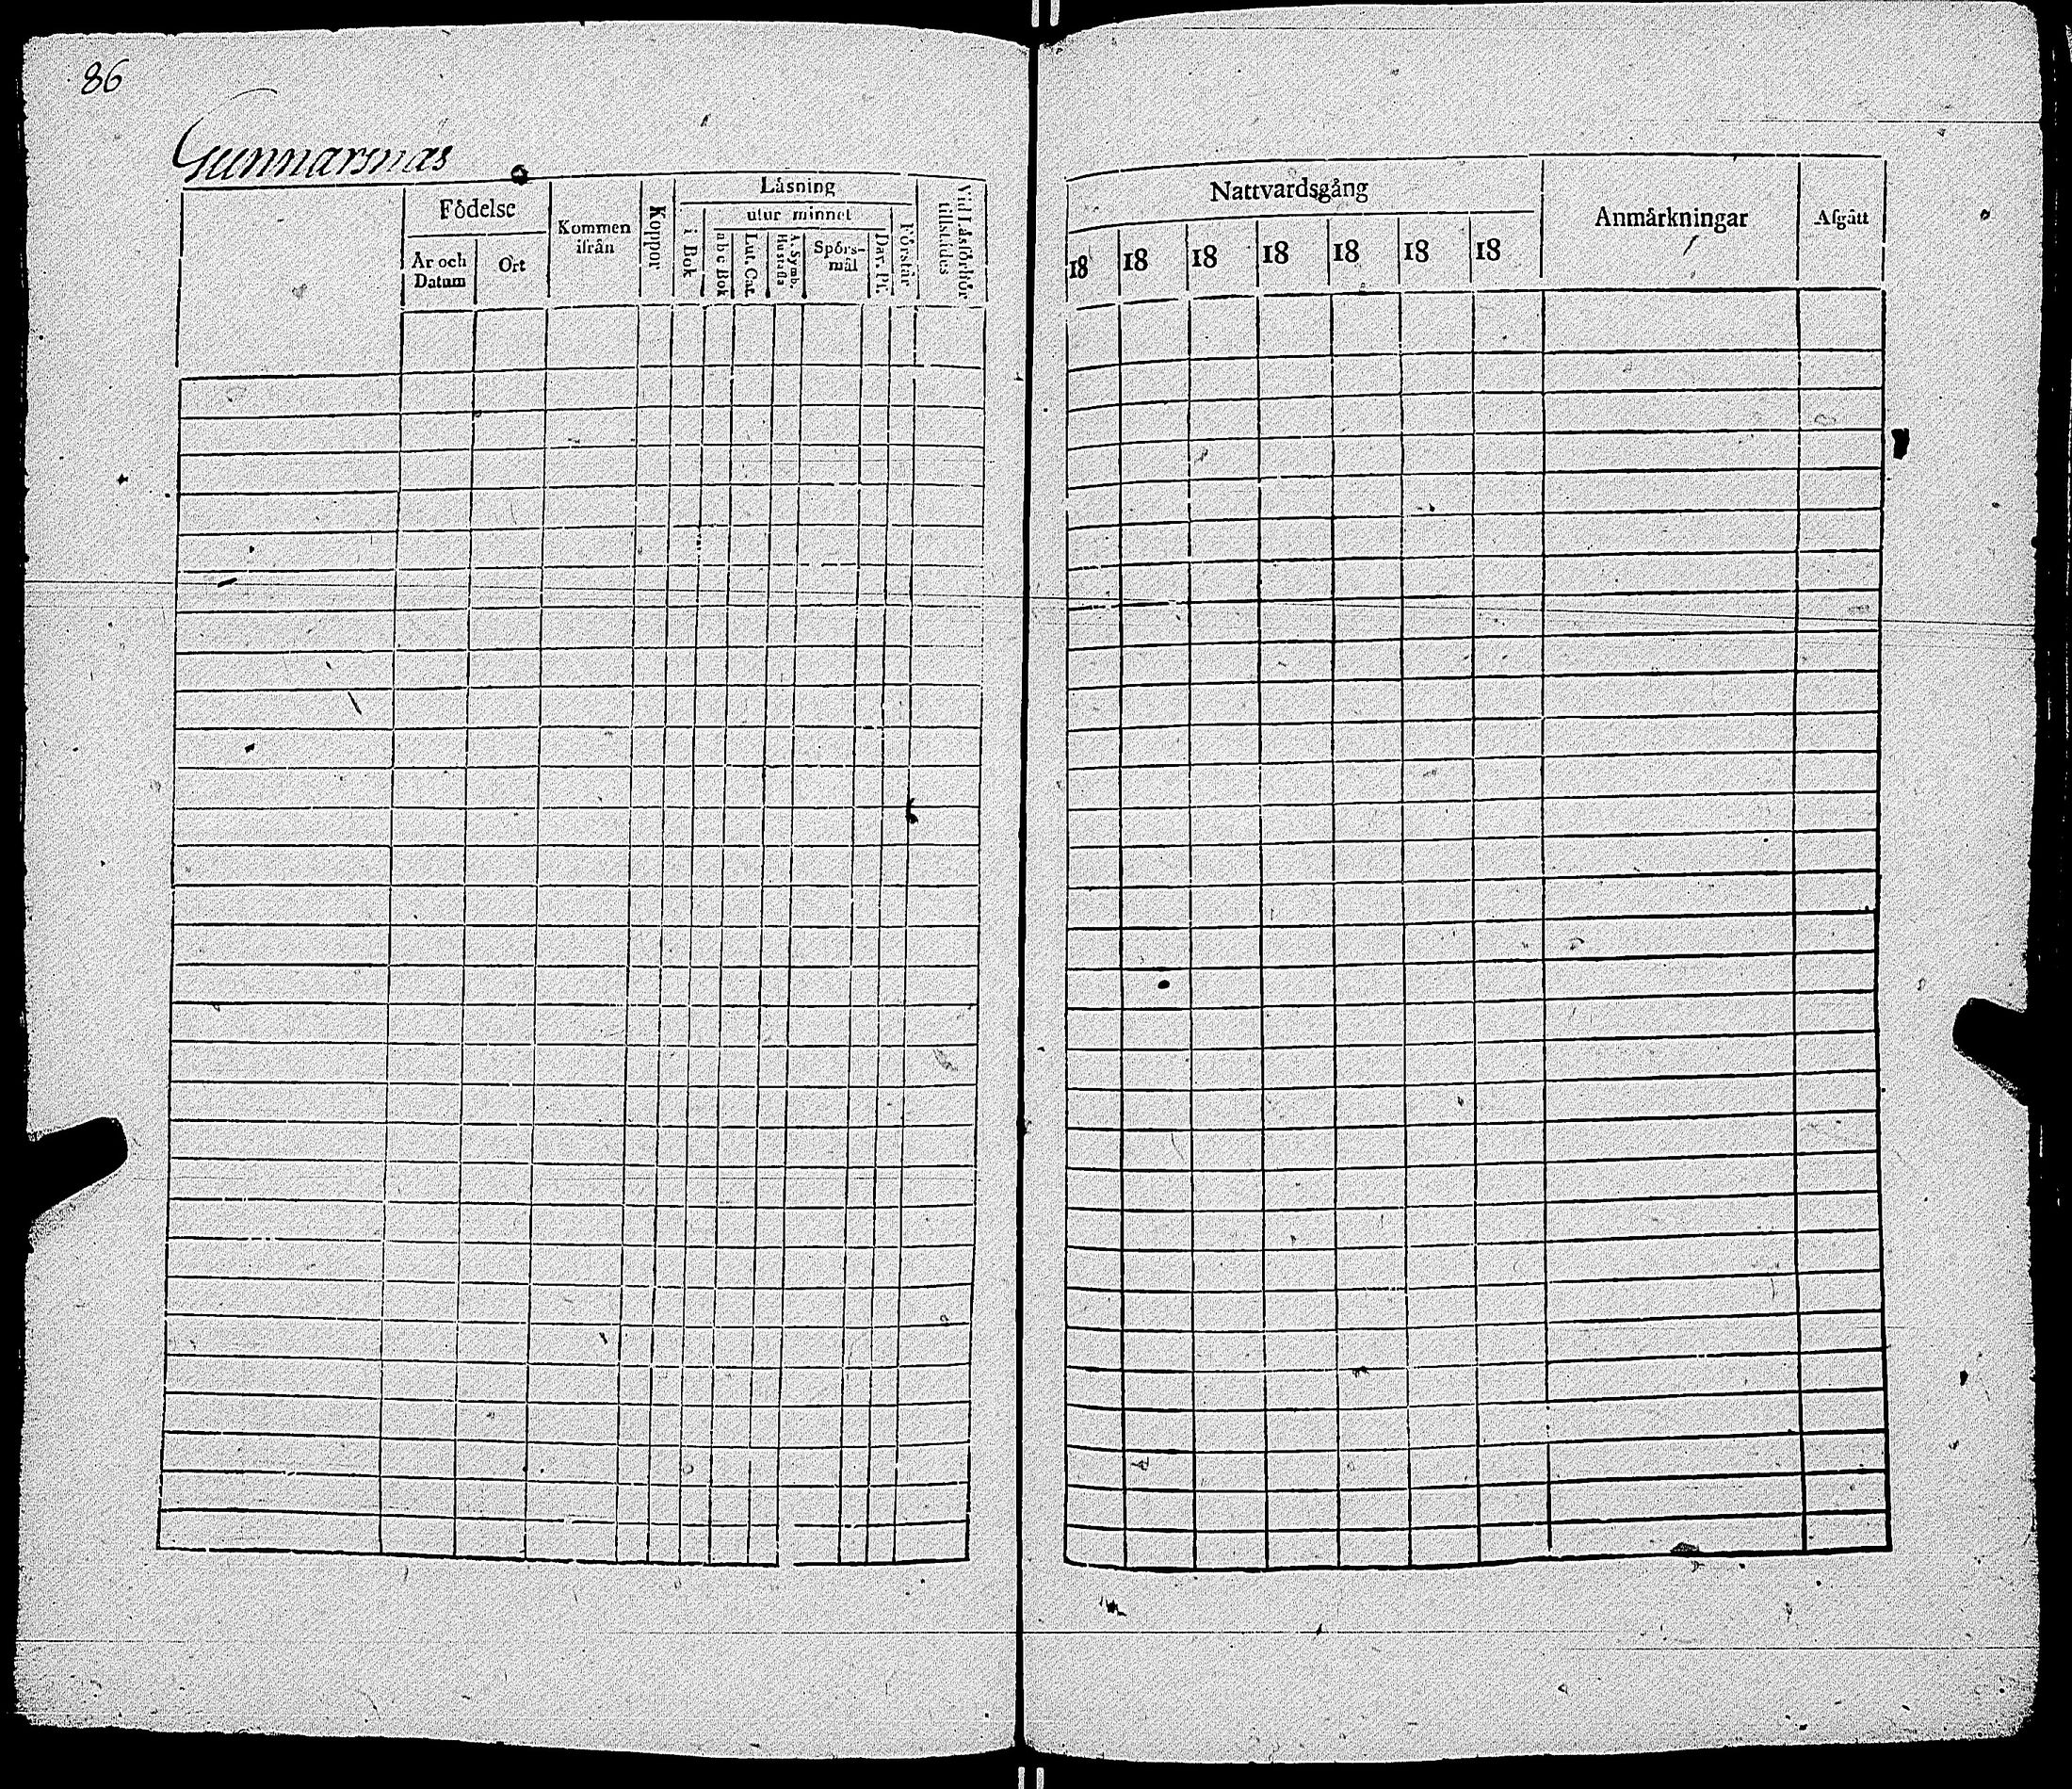 86
Gunnarsnäs
Födelse
År och Datum
Ort
Kommen ifrån
Koppor
Läsning
i Bok
utur minnet
abc Bok
Lut. Cat.
A. Symb. Hustafla
Spörsmål
Dav. Ps.
Förstår
Vid Läsförhör tillstädes
Nattvardsgång
18 18 18 18 18 18 18
Anmärkningar
Afgått